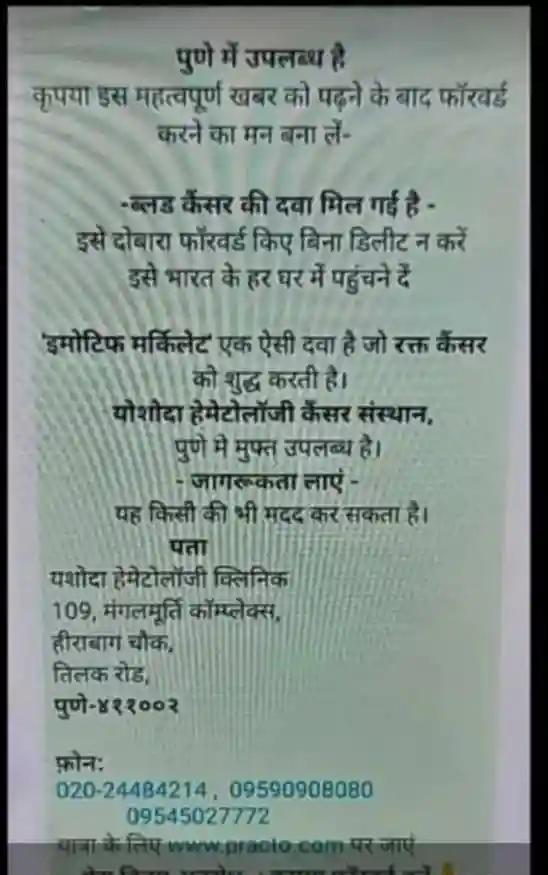 पुणे में उपलब्ध है
कृपया इस महत्वपूर्ण खबर को पढ़ने के बाद फॉरवर्ड
करने का मन बना लें-
-ब्लड कैंसर की दवा मिल गई है -
इसे दोबारा फॉरवर्ड किए बिना डिलीट न करें
इसे भारत के हर घर में पहुंचने दें
'इमोटिफ मर्किलेट' एक ऐसी दवा है जो रक्त कैंसर
को शुद्ध करती है।
योशोदा हेमेटोलॉजी कैंसर संस्थान,
पुणे मे मुफ्त उपलब्ध है।
- जागरूकता लाएं -
यह किसी की भी मदद कर सकता है।
पता
यशोदा हेमेटोलॉजी क्लिनिक
109, मंगलमूर्ति कॉम्प्लेक्स,
हीराबाग चौक,
तिलक रोड,
पुणे-४११००२
फ़ोन:
020-24484214, 09590908080
09545027772
यात्रा के लिए www.practo.com पर जाएं